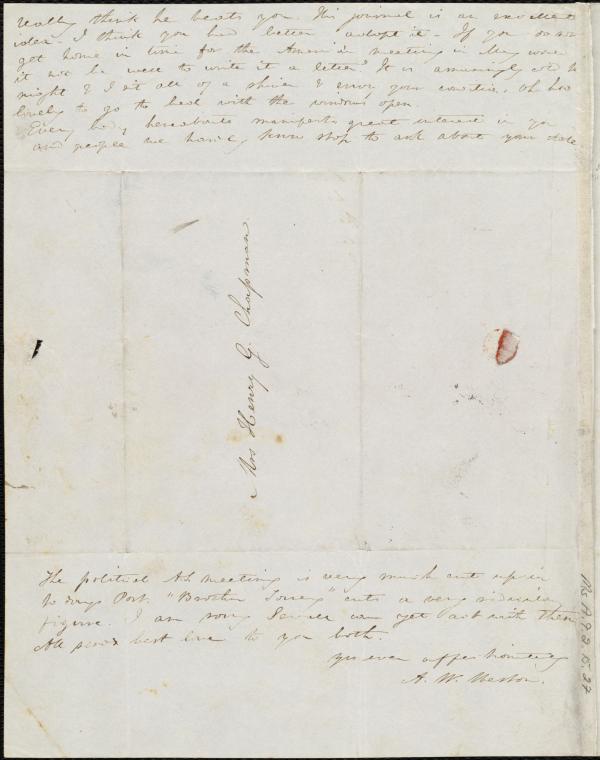 really think he beats you. His journal is an excellent
idea. I think you had better adopt it. If you do not
get home in time for the American meeting in May would
it not be well to write it a letter? It is amusingly cold to
night & I sit all of a shiver & envy your condition. Oh how
lovely to go to bed with the windows open.
Every body hereabouts manifests great interest in you
and people we hardly know stop to ask about your state
Mrs Henry G. Chapman.
The political AS meeting is very much cut up in
to days Post. "Brother Torrey" cuts a very ridiculous
figure. I am sorry Sewall can yet act with them
All send best love to you both.
yrs ever affectionately
A. W. Weston.
Ms. A. 9. 2. 15. 27